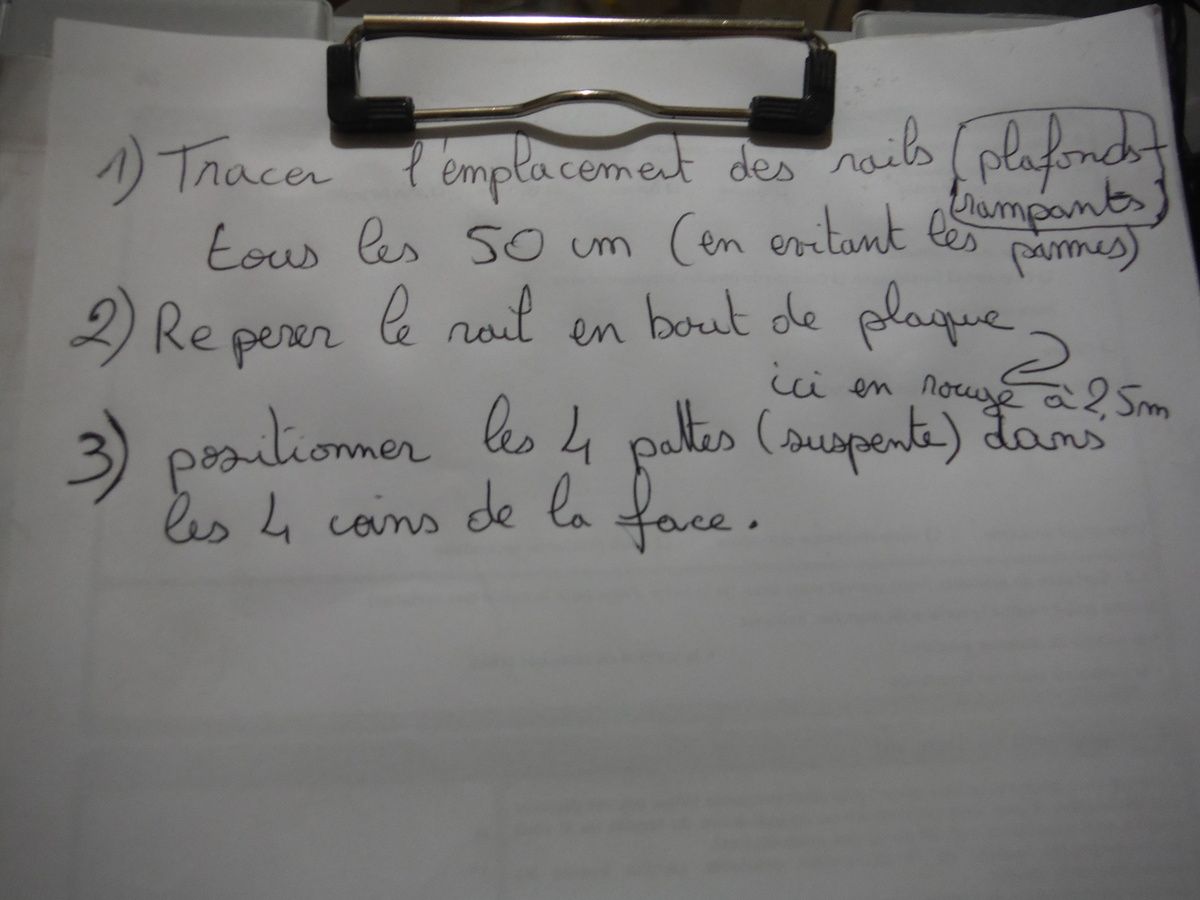 1) Tracer l'emplacement des rails (plafonds-
rampants)
tous les 50 cm (en evitant les pannes)
2) Reperer le rail en bout de plaque
ici en rouge à 2,5m
3) positionner les 4 pattes (suspente) dans
les 4 coins de la face.